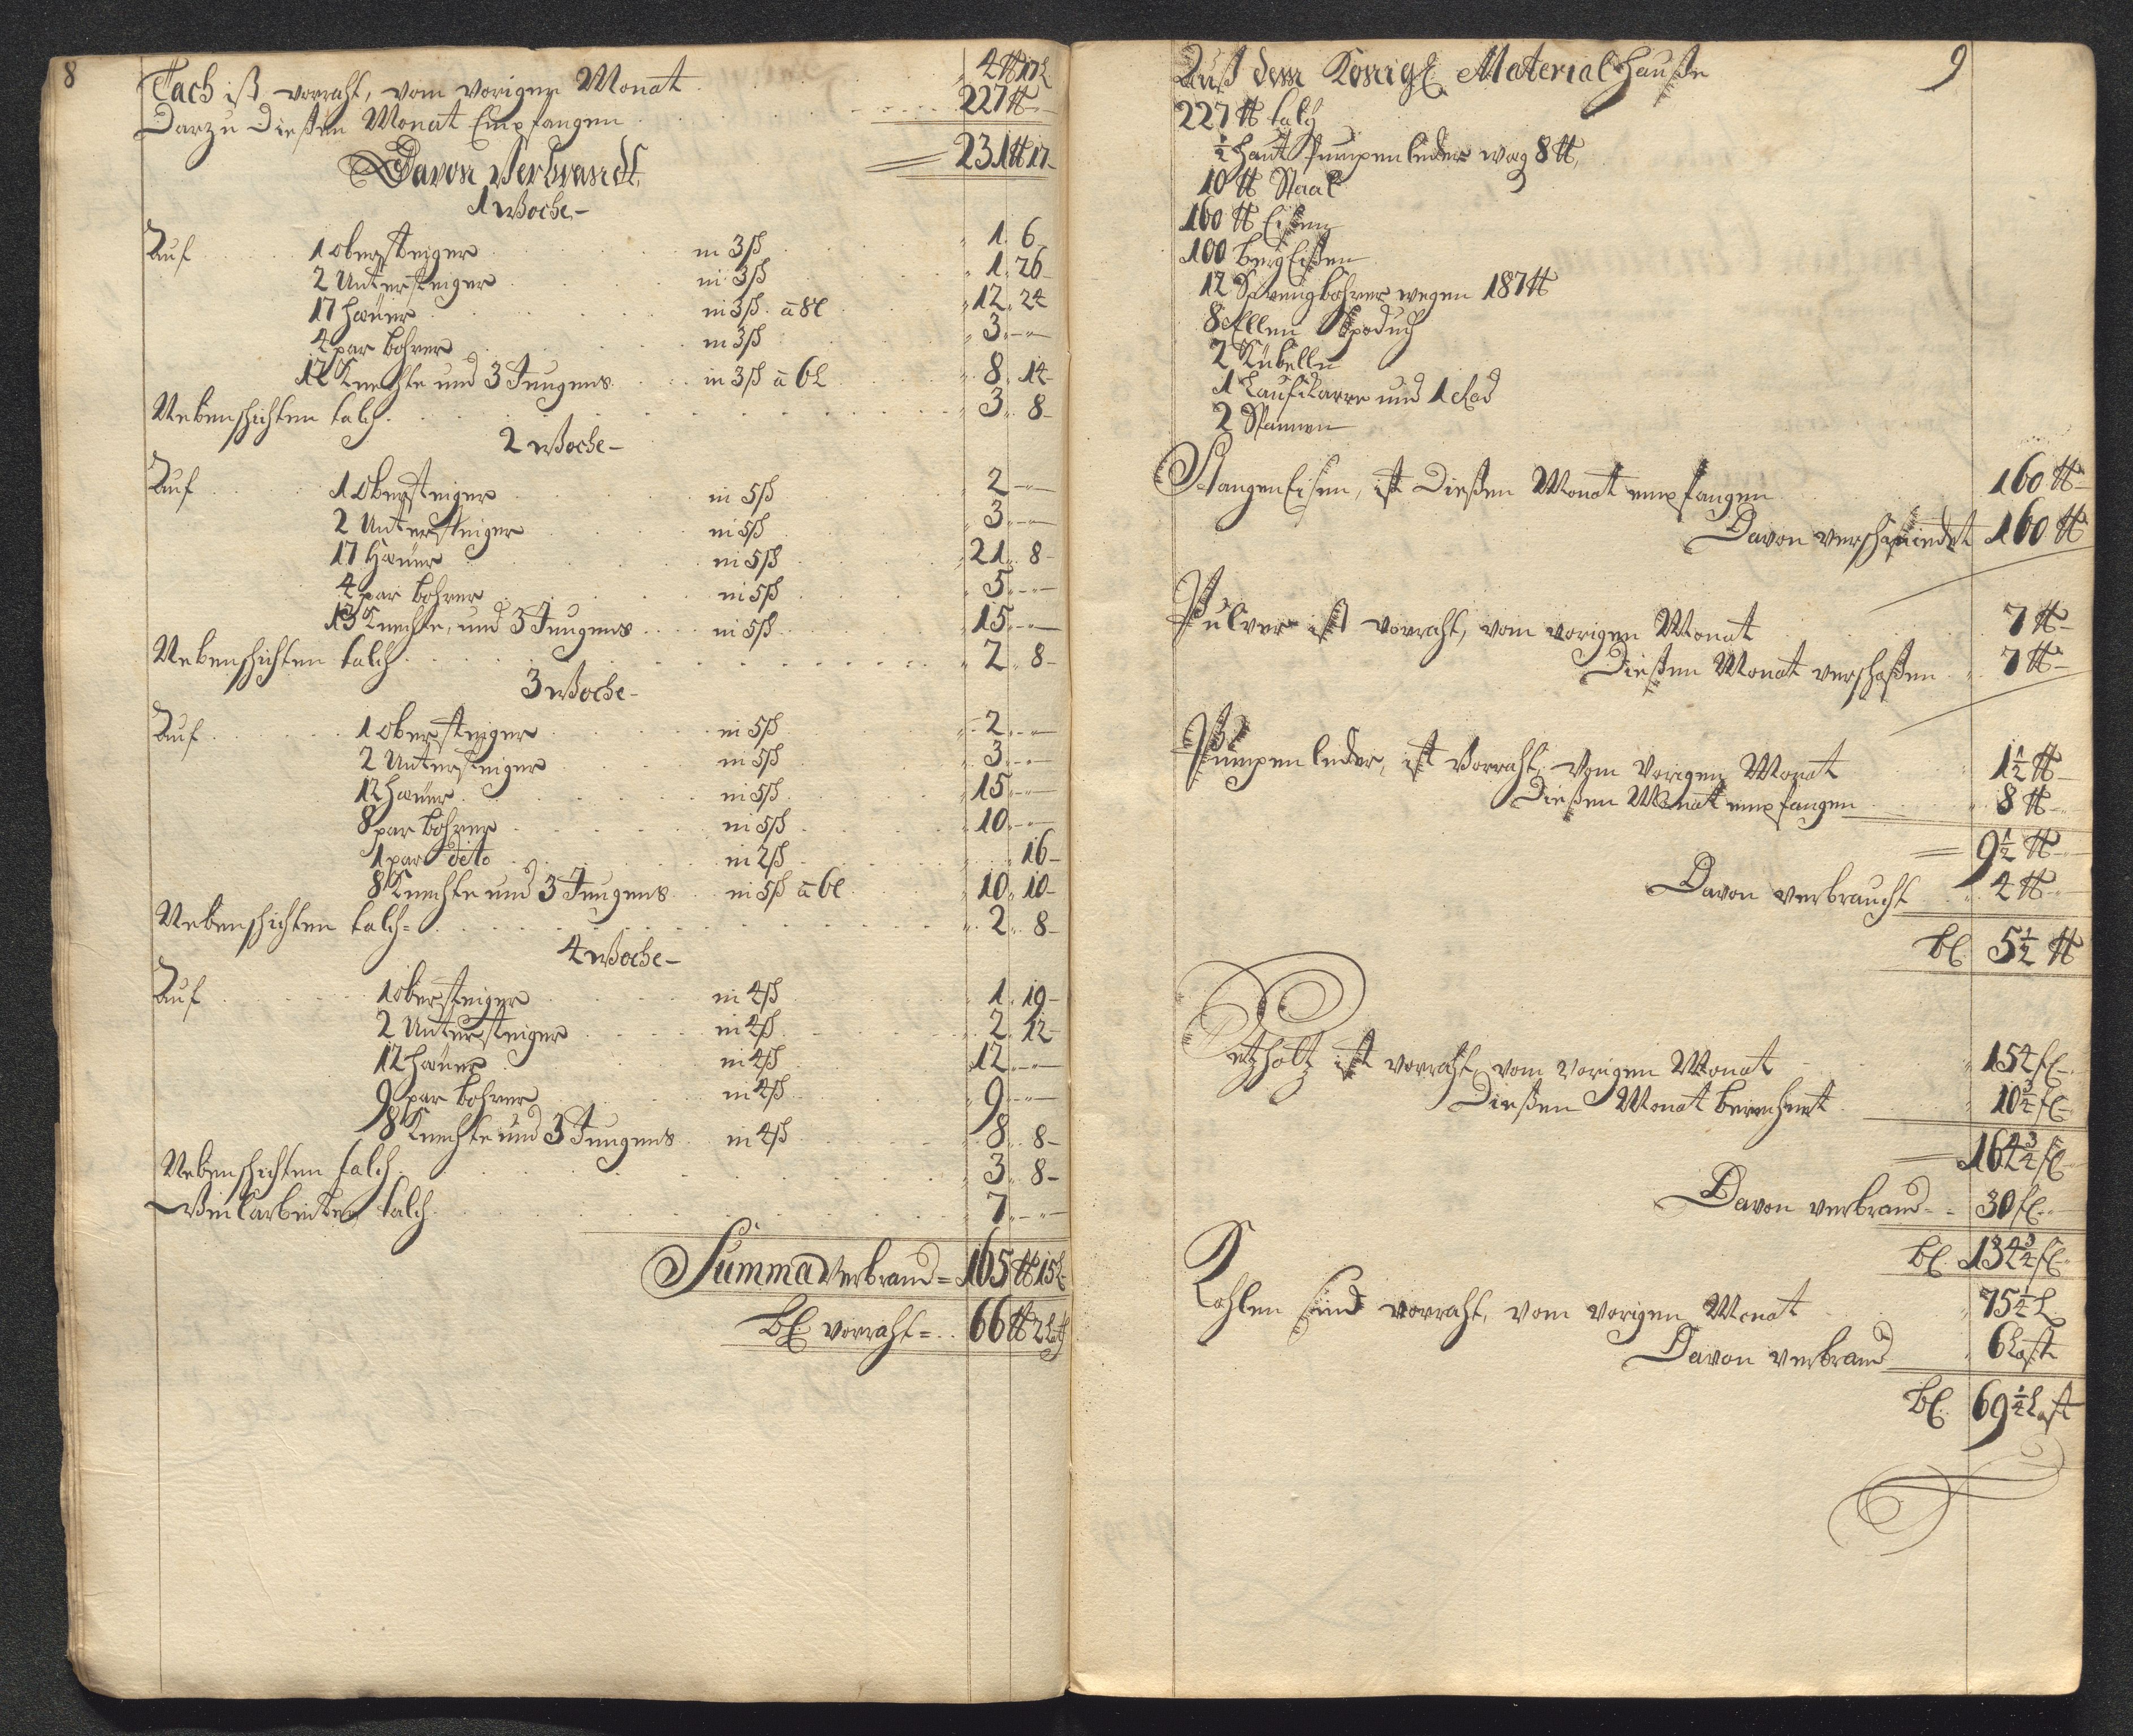 8
Tach iß vorraht, vom vorigen Monat 4 ℔ 17 L
Darzu Dießen Monat Empfangen 227 ℔
231 ℔ 17
Davon Verbrandt
1 Woche
Auf 1 obersteiger in 3 ß 1 6
2 Untersteiger in 3 ß 1 26
17 hæuer in 3 ß â 8 l 12 24
4 par bohrer in 3 ß 3
12 Knechte und 3 Jungens in 3 ß â 6 L 8 14
Nebenschichten talch 3 8
2 Woche
Auf 1 Obersteiger in 5 ß 2
2 Untersteiger in 5 ß 3
17 Hæuer in 5 ß 21 8
4 par bohrer in 5 ß 5
13 Knechte, und 3 Jungens in 5 ß 15
Nebenschichten talch 2 8
3 Woche
Auf 1 obersteiger in 5 ß 2
2 Untersteiger in 5 ß 3
12 hæuer in 5 ß 15
8 par bohrer in 5 ß 10
1 par dito in 2 ß 16
8 Knechte und 3 Jungens in 5 ß â 6 l 10 10
Nebenschichten talch 2 8
4 Woche
Auf 1 obersteiger in 4 ß 1 19
2 Untersteiger in 4 ß 2 12
12 hæuer in 4 ß 12
9 par bohrer in 4 ß 9
8 Knechte und 3 Jungens in 4 ß 8 8
Nebenschichten talch 3 8
Weilarbeiter talch 7
Summa Verbrand = 165 ℔ 15 L
bl. vorraht = 66 ℔ 2 Lth
9
Auß dem Königl. Material Hauße
227 ℔ talg
½ haut Pumpenleder wog 8 ℔
10 ℔ Staal
160 ℔ Eisen
100 bergEißen
12 Sprengbohrer wegen 187 ℔
8 Ellen
2 Kübelln
1 Laufkarre und 1 Rad
2 Spannen
StangenEisen, ist Dießen Monat empfangen 160 ℔
Davon verschmiedet 160 ℔
Pulver ist vorraht, vom vorigen Monat 7 ℔
Dießen Monat verschoßen 7 ℔
Pumpenleder, ist Vorraht, vom Vorigen Monat 1½ ℔
Dießen Monat empfangen 8 ℔
9½ ℔
Davon verbraucht 4 ℔
bl. 5½ ℔
Setzholtz ist vorraht, vom vorigen Monat 154 fl
Dießen Monat berechnet 10¾ fl
164¾ fl
Davon verbrand 30 fl
bl. 134¾ fl
Kohlen sind vorraht, vom vorigen Monat 75½ L
Davon verbrand 6 Last
bl. 69½ Last